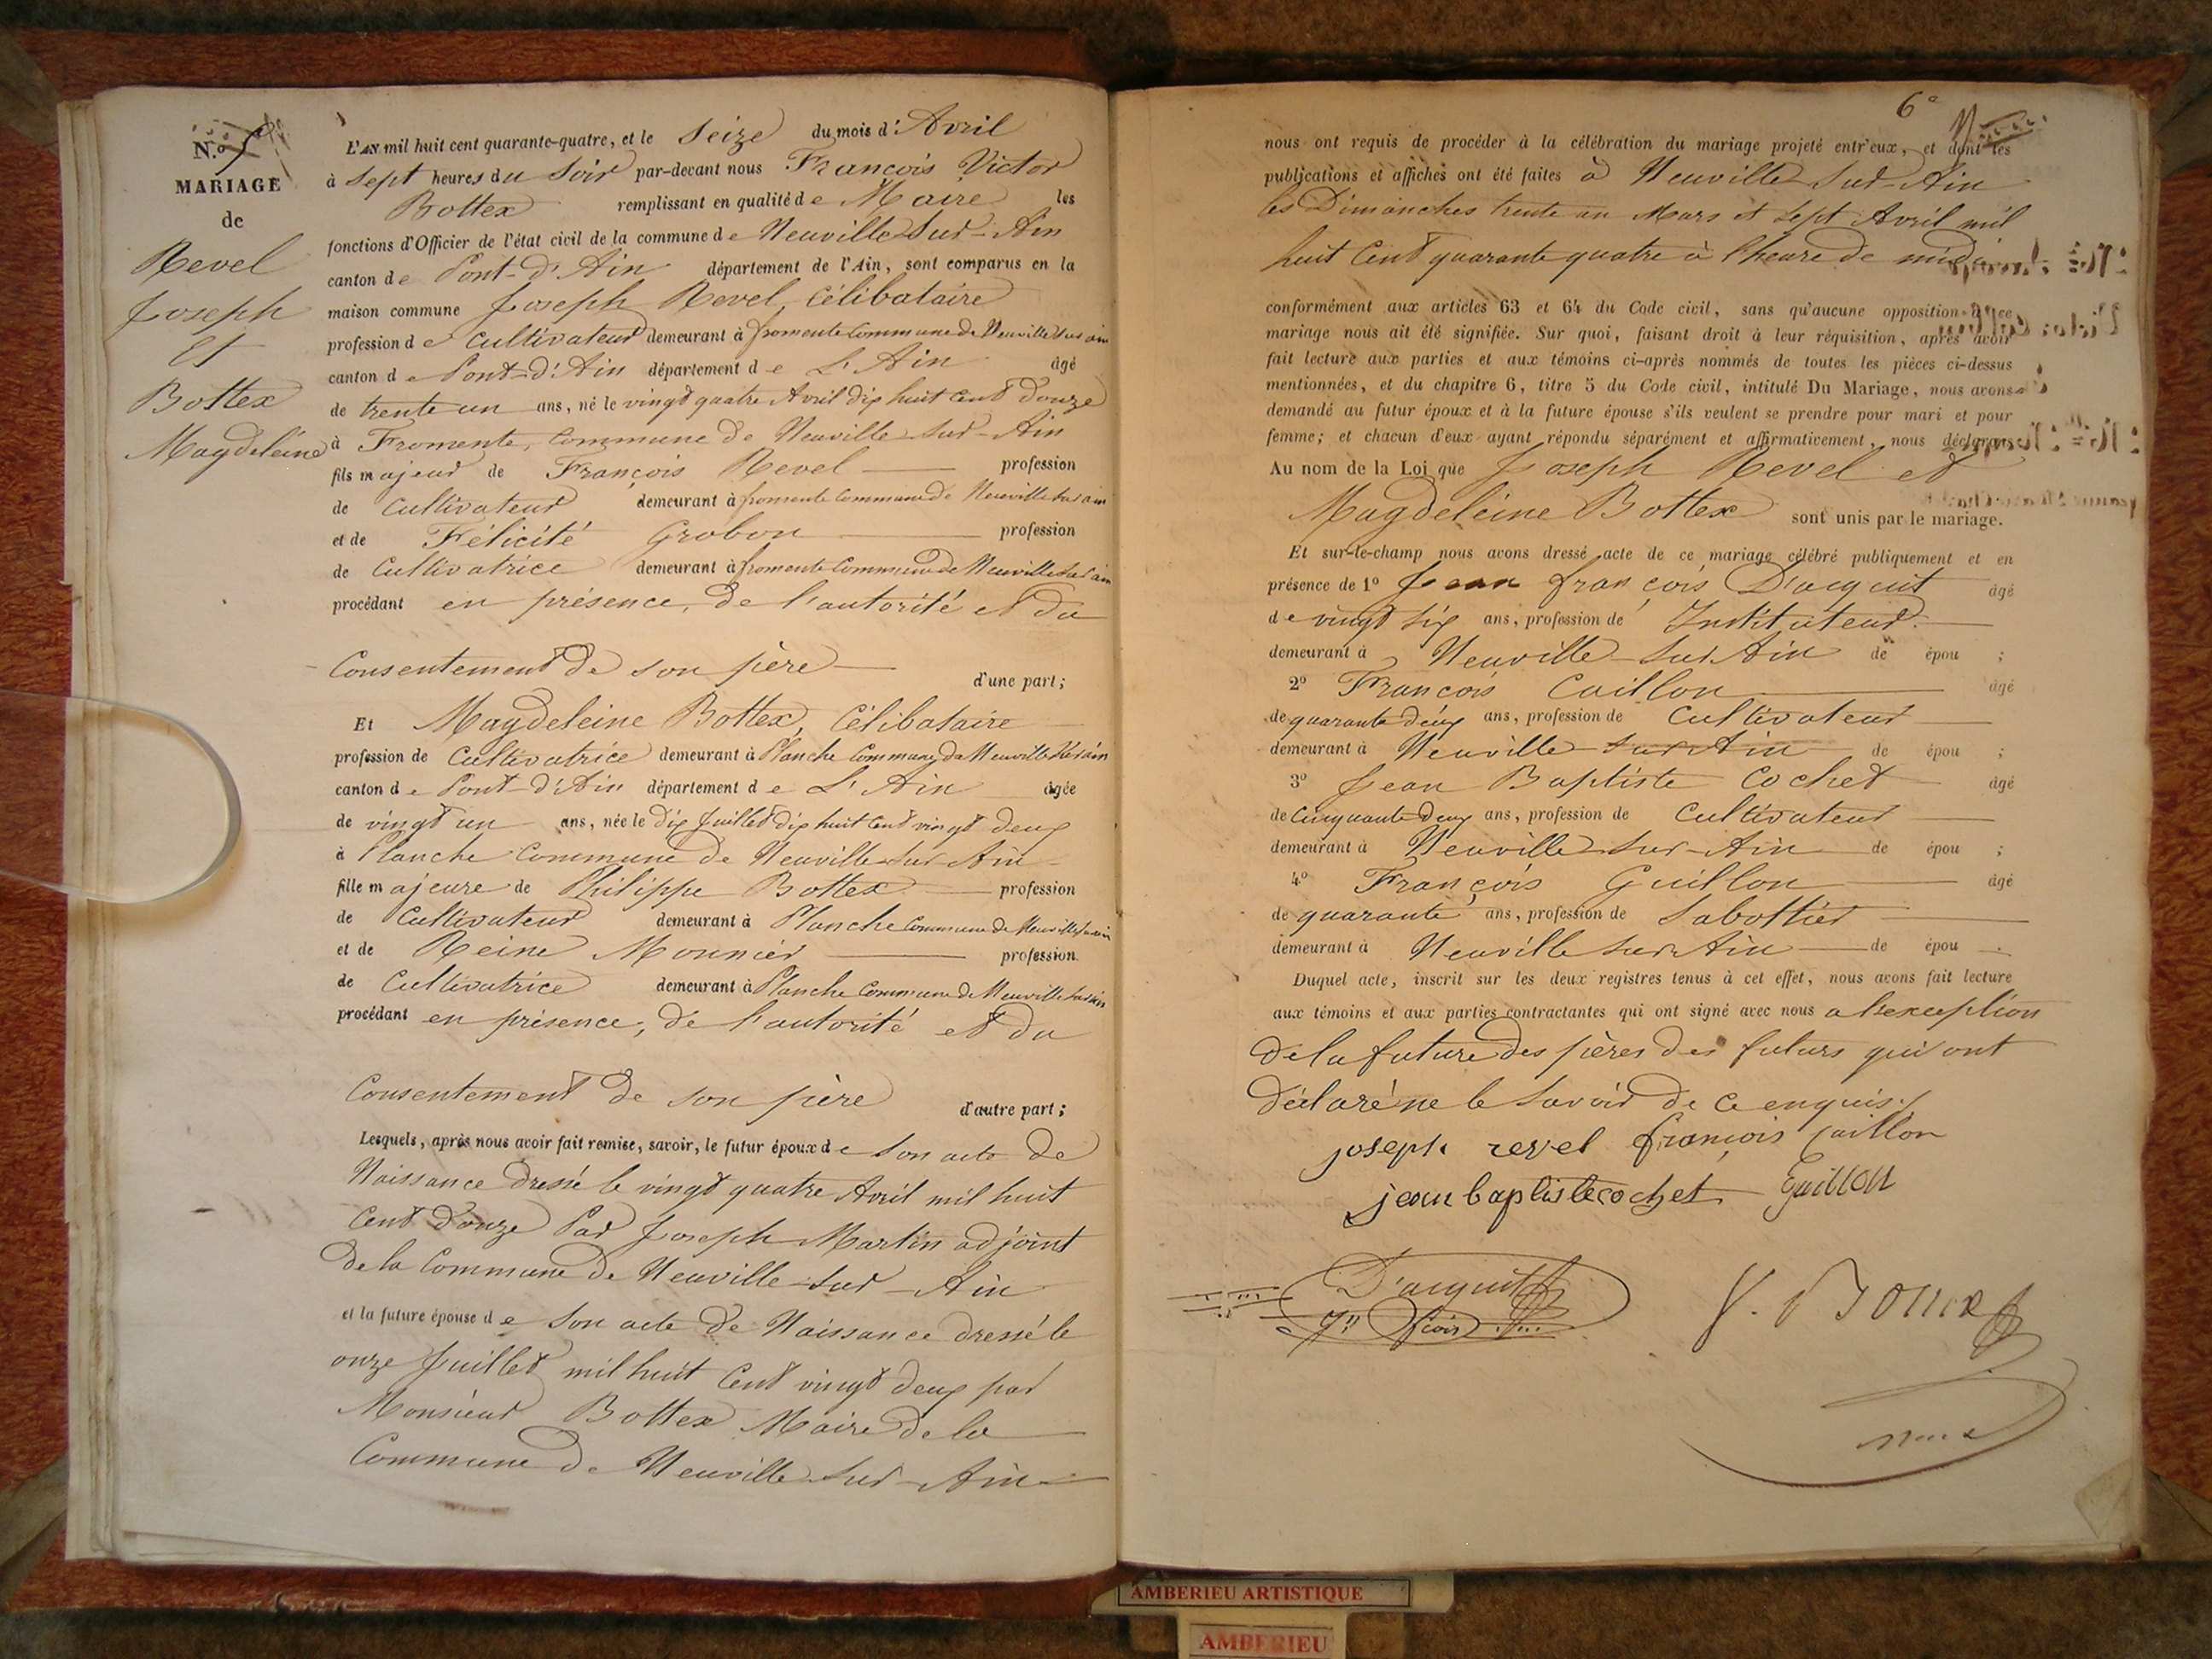 N.o 5
MARIAGE
de
Revel
Joseph
et
Bottex
Magdeleine
L'AN mil huit cent quarante-quatre, et le Seize du mois d'Avril
à Sept heures du Soir par-devant nous François Victor
Bottex remplissant en qualité de Maire les
fonctions d'Officier de l'état civil de la commune de Neuville Sur-Ain
canton de Pont-d'Ain département de l'Ain, sont comparus en la
maison commune Joseph Revel, Célibataire
profession de Cultivateur demeurant à fromente Commune de Neuville Sur ain
canton de Pont-d'Ain département de L'Ain âgé
de trente un ans, né le vingt quatre Avril dix huit Cent Douze
à Fromente, Commune de Neuville Sur-Ain
fils majeur de François Revel profession
de Cultivateur demeurant à fromente Commune de Neuville Sur ain
et de Félicité Grobon profession
de Cultivatrice demeurant à fromente Commune de Neuville Sur ain
procédant en présence, de l'autorité et du
Consentement de son père
d'une part;
Et Magdeleine Bottex, Célibataire
profession de Cultivatrice demeurant à Planche Commune de Neuville Sur ain
canton de Pont-d'Ain département de L'Ain âgée
de vingt un ans, née le Dix Juillet dix huit Cent vingt deux
à Planche Commune de Neuville Sur Ain
fille majeure de Philippe Bottex profession
de Cultivateur demeurant à Planche Commune de Neuville Sur ain
et de Reine Mounier profession
de Cultivatrice demeurant à Planche Commune de Neuville Sur ain
procédant en présence, de l'autorité et du
Consentement de son père
d'autre part;
Lesquels, après nous avoir fait remise, savoir, le futur époux de Son acte de
Naissance Dressé le vingt quatre Avril mil huit
Cent Douze Par Joseph Martin adjoint
De la Commune de Neuville-Sur-Ain
et la future épouse de Son acte de Naissance dressé le
onze Juillet mil huit Cent vingt deux par
Monsieur Bottex Maire de la
Commune de Neuville Sur-Ain
6e
nous ont requis de procéder à la célébration du mariage projeté entr'eux, et dont les
publications et affiches ont été faites à Neuville Sur-Ain
les Dimanches trente un Mars et Sept Avril mil
huit Cent quarante quatre à l'heure de midi
conformément aux articles 63 et 64 du Code civil, sans qu'aucune opposition à ce
mariage nous ait été signifiée. Sur quoi, faisant droit à leur réquisition, après avoir
fait lecture aux parties et aux témoins ci-après nommés de toutes les pièces ci-dessus
mentionnées, et du chapitre 6, titre 5 du Code civil, intitulé Du Mariage, nous avons
demandé au futur époux et à la future épouse s'ils veulent se prendre pour mari et pour
femme; et chacun d'eux ayant répondu séparément et affirmativement, nous déclarons
Au nom de la Loi que Joseph Revel et
Magdeleine Bottex sont unis par le mariage.
Et sur-le-champ nous avons dressé acte de ce mariage célébré publiquement et en
présence de 1o Jean françois D'aiguit âgé
de vingt Six ans, profession de Instituteur
demeurant à Neuville Sur Ain de épou ;
2o François Caillon âgé
de quarante deux ans, profession de Cultivateur
demeurant à Neuville Sur Ain de épou ;
3o Jean Baptiste Cochet âgé
de Cinquante deux ans, profession de Cultivateur
demeurant à Neuville Sur-Ain de épou ;
4o François Guillon âgé
de quarante ans, profession de Sabottier
demeurant à Neuville Sur Ain de épou .
Duquel acte, inscrit sur les deux registres tenus à cet effet, nous avons fait lecture
aux témoins et aux parties contractantes qui ont signé avec nous a l'exception
De la future Des pères Des futurs qui ont
Déclaré ne le Savoir De ce enquis
joseph revel françois Caillon
jean baptiste cochet Guillon
D'aiguit
Jn fcois
AMBERIEU ARTISTIQUE
AMBERIEU